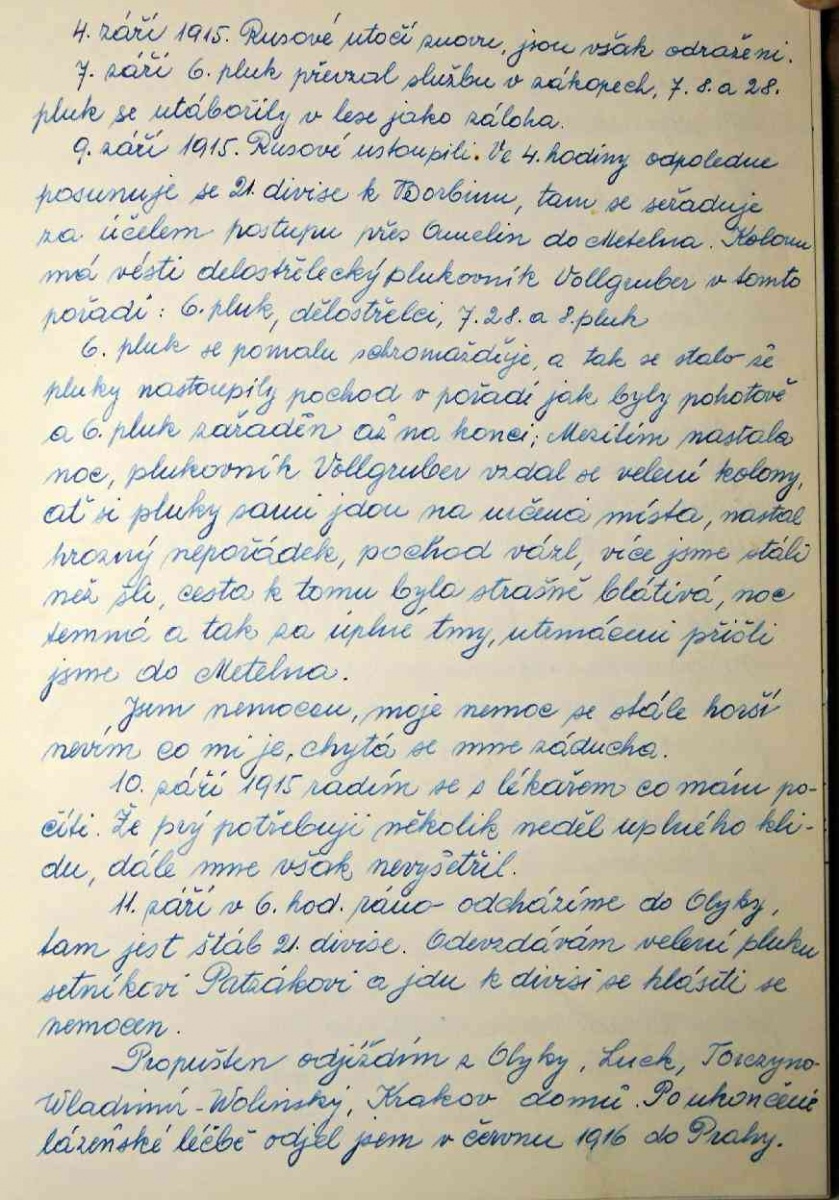 4. září 1915. Rusové utočí znovu, jsou však odraženi.
7. září 6. pluk převzal službu v zákopech, 7. 8. a 28.
pluk se utábořily v lese jako záloha.
9. září 1915. Rusové ustoupili. Ve 4. hodiny odpoledne
posunuje se 21. divise k Borbinu, tam se seřaduje
za účelem postupu přes Omelin do Metelna. Kolonu
má vésti delostřelecký plukovník Vollgruber v tomto
pořadí: 6. pluk, dělostřelci, 7. 28. a 8. pluk
6. pluk se pomalu schromažďuje, a tak se stalo že
pluky nastoupily pochod v pořadí jak byly pohotově
a 6. pluk zařaděn až na konci; Mezitím nastala
noc, plukovník Vollgruber vzdal se velení kolony,
ať si pluky sami jdou na určená místa, nastal
hrozný nepořádek, pochod vázl, více jsme stáli
než šli, cesta k tomu byla strašně blátivá, noc
temmá a tak za úplné tmy, utrmáceni přišli
jsme do Metelna.
Jsem nemocen, moje nemoc se stále horší
nevím co mi je, chytá se mne záducha.
10. září 1915 radím se s lékařem co mám po-
číti. Že prý potřebuji několik neděl uplného kli-
du, dále mne však nevyšetřil.
11. září v 6. hod. ráno odcházíme do Olyky,
tam jest štáb 21. divise. Odevzdávám velení pluku
setníkovi Patzákovi a jdu k divisi se hlásiti se
nemocen.
Propuštěn odjíždím z Olyky, Luck, Torczyno-
Wladimir-Wolinský, Krakov domů. Po ukončené
lázeňské léčbě odjel jsem v červnu 1916 do Prahy.